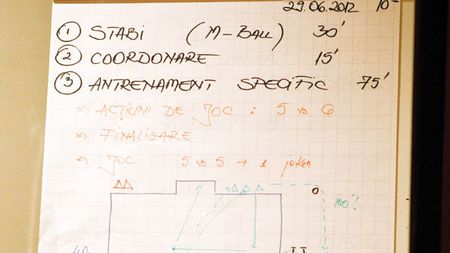 29.06.2012 10
① STABI (M-BALL) 30'
② COORDONARE 15'
③ ANTRENAMENT SPECIFIC 75'
⇒ ACȚIUNI DE JOC : 5 vs 6
⇒ FINALIZARE
⇒ JOC 5 vs 5 + 1 joker
100%